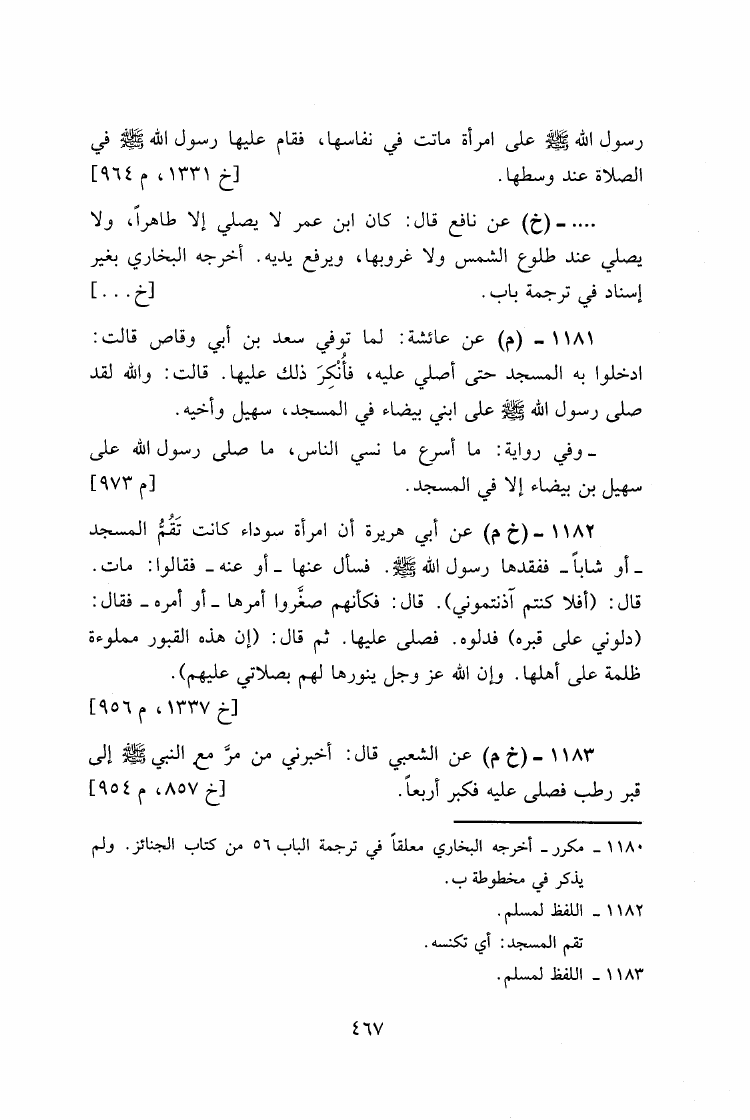 رسول الله ﷺ على امرأة ماتت في نفاسها، فقام عليها رسول الله ﷺ في
الصلاة عند وسطها. [خ ١٣٣١، م ٩٦٤]
.... ـ (خ) عن نافع قال: كان ابن عمر لا يصلي إلا طاهراً، ولا
يصلي عند طلوع الشمس ولا غروبها، ويرفع يديه. أخرجه البخاري بغير
إسناد في ترجمة باب. [خ...]
١١٨١ ـ (م) عن عائشة: لما توفي سعد بن أبي وقاص قالت:
ادخلوا به المسجد حتى أصلي عليه، فأُنْكِرَ ذلك عليها. قالت: والله لقد
صلى رسول الله ﷺ على ابني بيضاء في المسجد، سهيل وأخيه.
ـ وفي رواية: ما أسرع ما نسي الناس، ما صلى رسول الله على
سهيل بن بيضاء إلا في المسجد. [م ٩٧٣]
١١٨٢ ـ (خ م) عن أبي هريرة أن امرأة سوداء كانت تَقُمُّ المسجد
ـ أو شاباً ـ ففقدها رسول الله ﷺ. فسأل عنها ـ أو عنه ـ فقالوا: مات.
قال: (أفلا كنتم آذنتموني). قال: فكأنهم صغَّروا أمرها ـ أو أمره ـ فقال:
(دلوني على قبره) فدلوه. فصلى عليها. ثم قال: (إن هذه القبور مملوءة
ظلمة على أهلها. وإن الله عز وجل ينورها لهم بصلاتي عليهم).
[خ ١٣٣٧، م ٩٥٦]
١١٨٣ ـ (خ م) عن الشعبي قال: أخبرني من مرَّ مع النبي ﷺ إلى
قبر رطب فصلى عليه فكبر أربعاً. [خ ٨٥٧، م ٩٥٤]
١١٨٠ ـ مكرر ـ أخرجه البخاري معلقاً في ترجمة الباب ٥٦ من كتاب الجنائز. ولم
يذكر في مخطوطة ب.
١١٨٢ ـ اللفظ لمسلم.
تقم المسجد: أي تكنسه.
١١٨٣ ـ اللفظ لمسلم.
٤٦٧